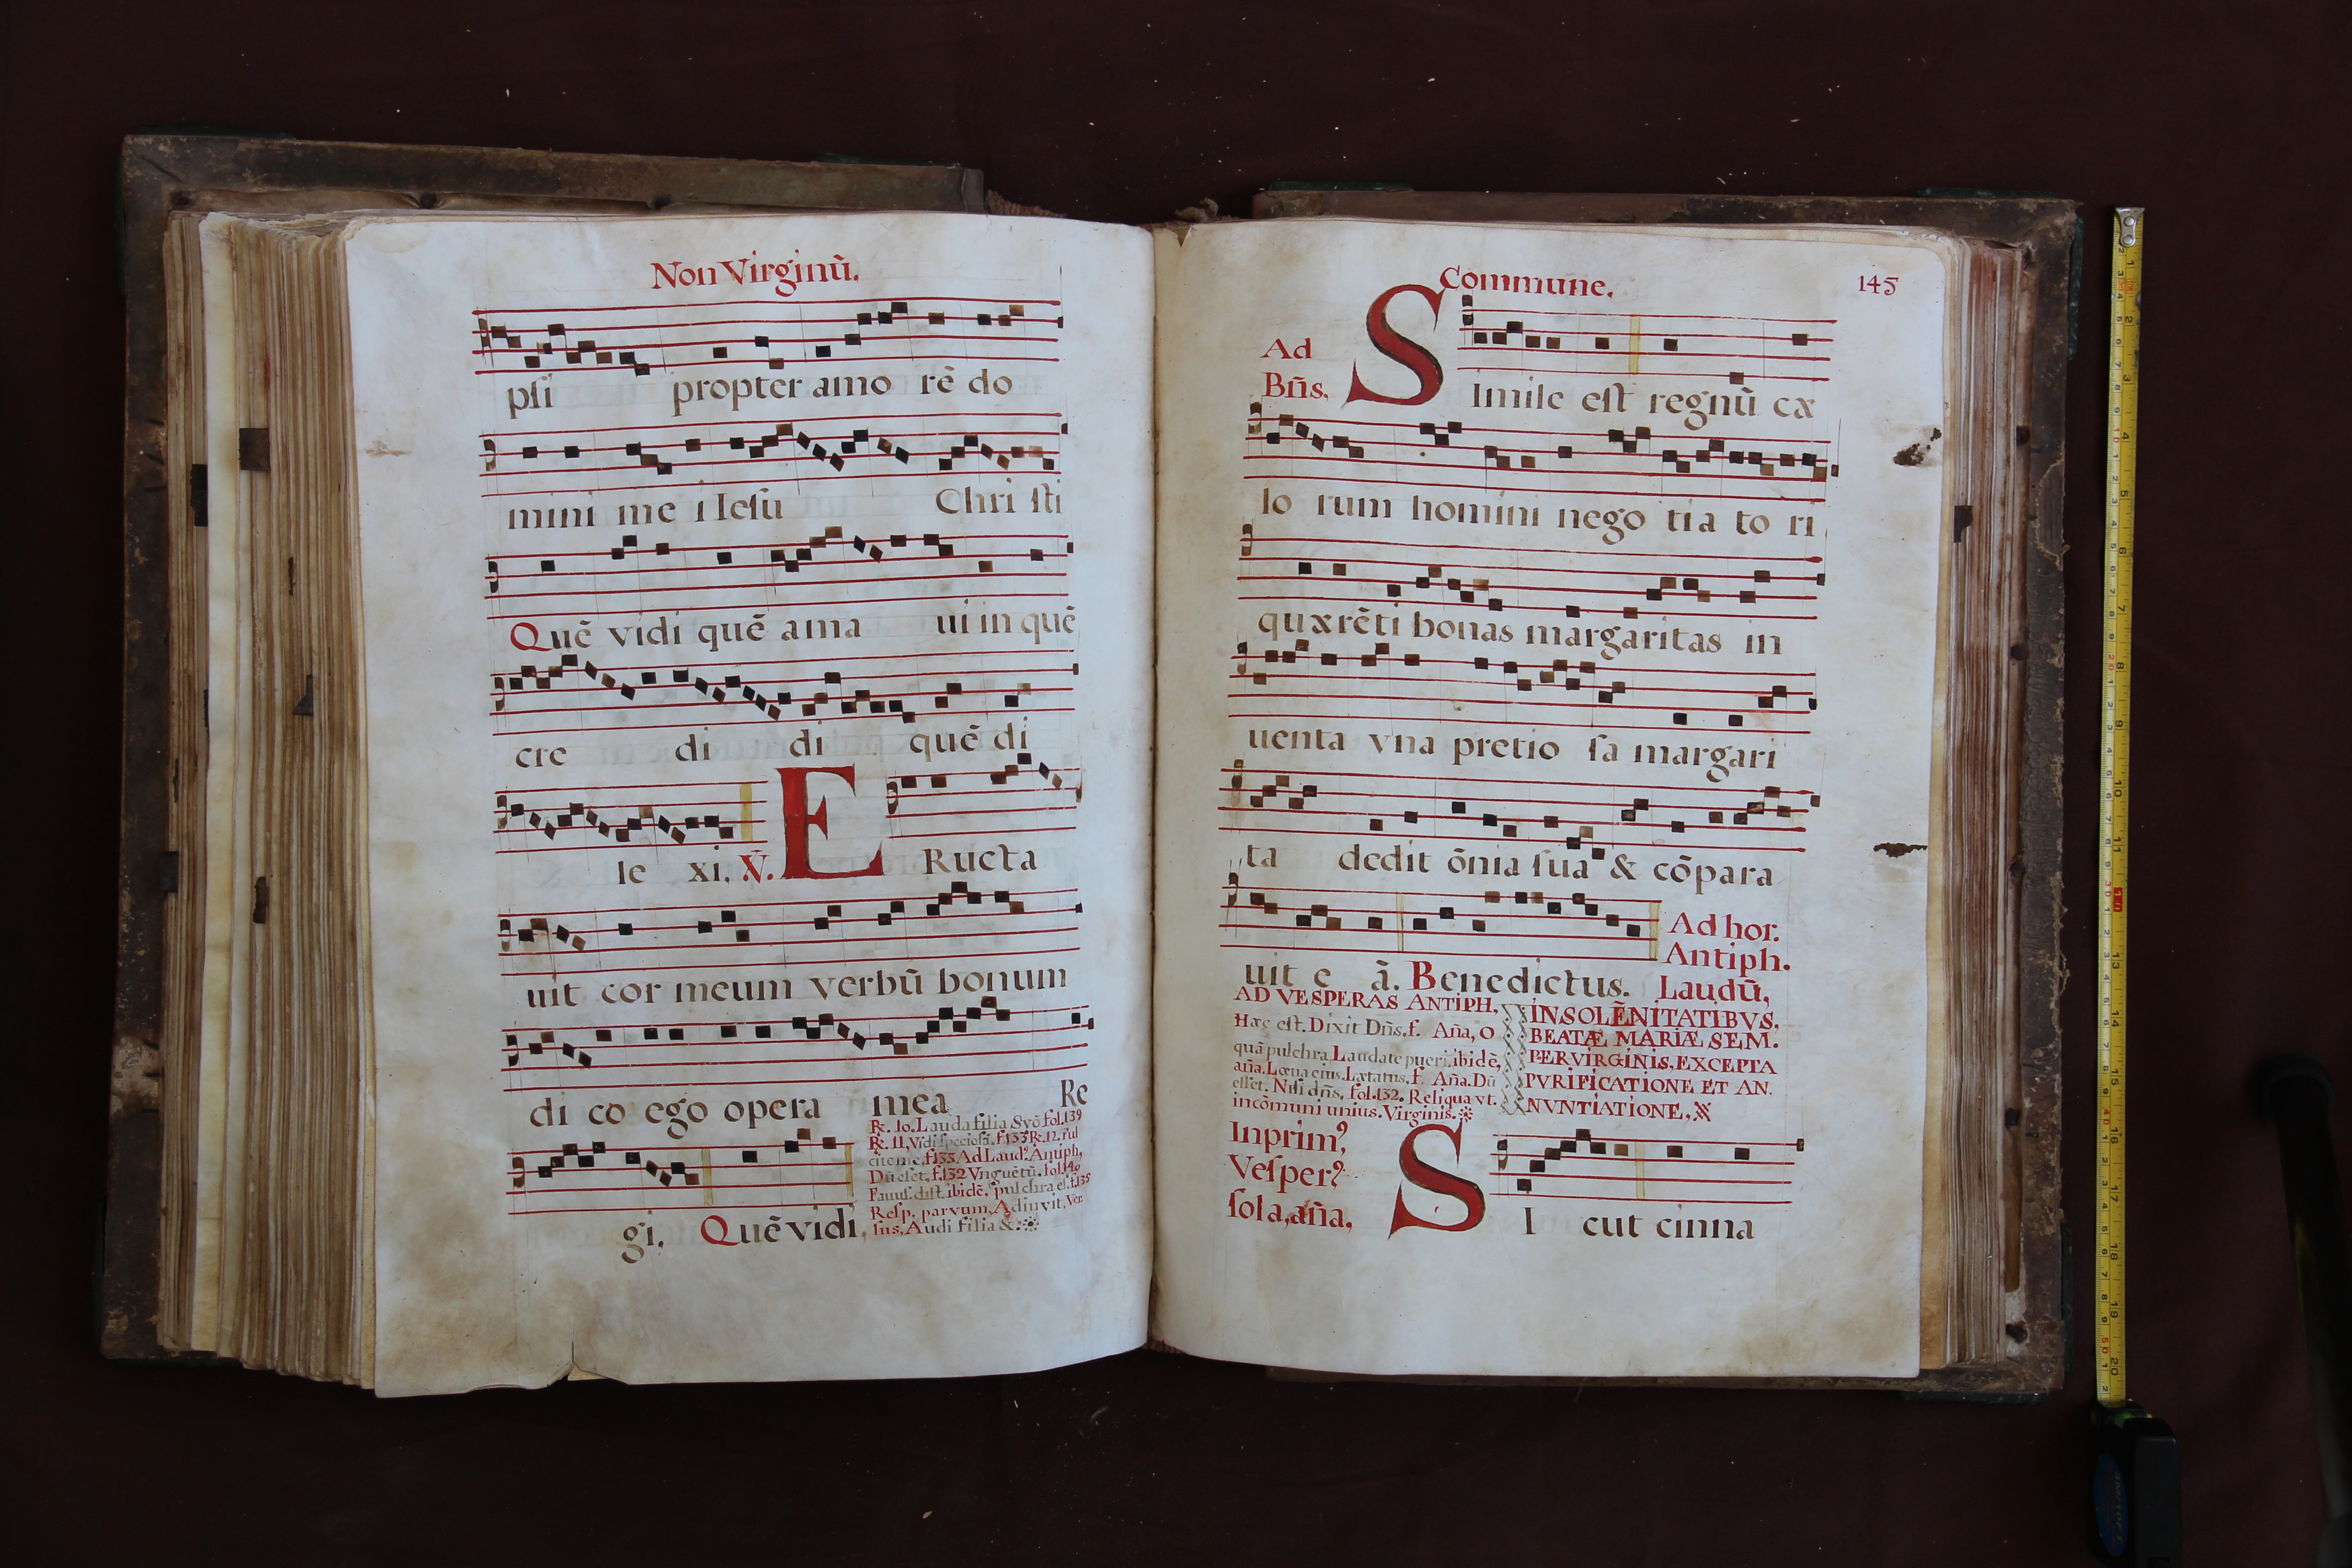 Non Virginū.
psi propter amo rē do
mini me i Iesu Chri sti
Quē vidi quē ama ui in quē
cre di di quē di
le xi. V̄. E Ructa
uit cor meum verbū bonum
di co ego opera mea Re
gi. Quē vidi,
R. 10. Lauda filia Syō fol. 139
R. 11. Vidi speciosā. f. 133 R. 12. Ful
cite me, f. 133 Ad Laud. Antiph,
Dū eset, f. 132 Vnguētū. fol. 140
Fauus. dist. ibidē. pulchra es. f. 135
Resp. parvum, Adiuvit. Ver
sus, Audi filia &.
Commune. 145
Ad
Bn̄s, S Imile est regnū cæ
lo rum homini nego tia to ri
quærēti bonas margaritas in
uenta vna pretio sa margari
ta dedit ōnia sua & cōpara
uit e ā. Benedictus.
Ad hor.
Antiph.
Laudū,
AD VESPERAS ANTIPH,
Hæc est. Dixit Dn̄s. f. Aña, O
quā pulchra, Laudate pueri. ibidē,
aña. Læua eius. Lætatus. f. Aña. Dū
esset. Nisi dn̄s, fol. 132. Reliqua vt.
in cōmuni unius. Virginis.
IN SOLĒNITATIBVS.
BEATÆ MARIÆ SEM.
PER VIRGINIS, EXCEPTA
PVRIFICATIONE ET AN.
NVNTIATIONE,
Inprim,
Vesper
sola, aña, S I cut cinna